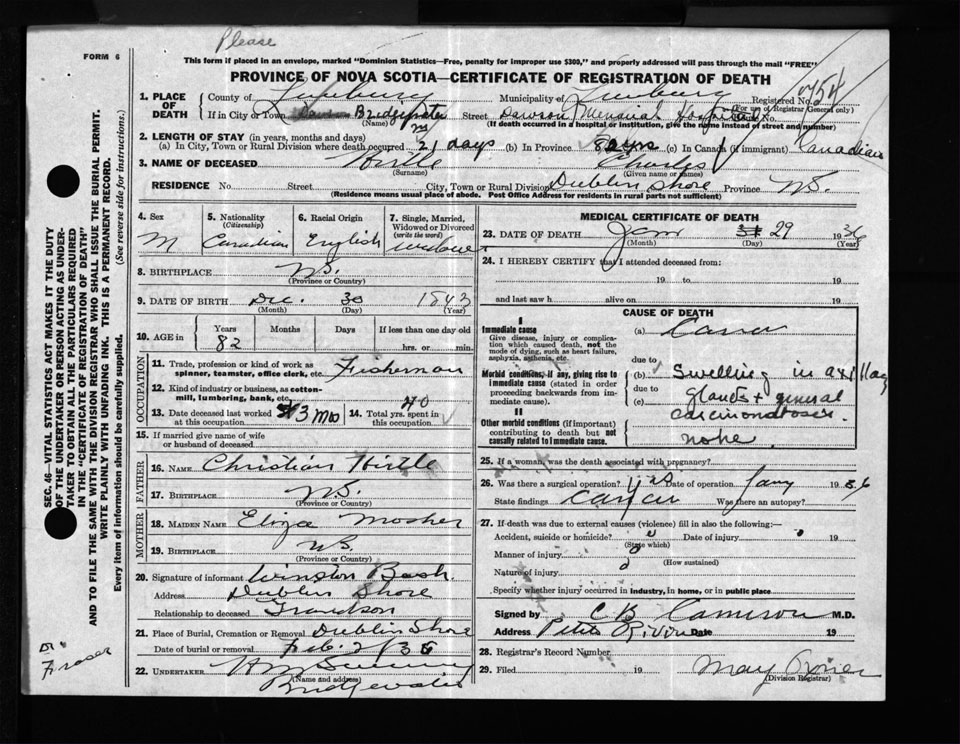 Please
FORM 6
This form if placed in an envelope, marked "Dominion Statistics—Free, penalty for improper use $300," and properly addressed will pass through the mail "FREE"
PROVINCE OF NOVA SCOTIA—CERTIFICATE OF REGISTRATION OF DEATH
1. PLACE OF DEATH County of Lunenburg Municipality of Lunenburg Registered No. 754
(For use of Registrar General only)
If in City or Town Bridgewater Street Dawson Memorial Hospital No.
(Name) (If death occurred in a hospital or institution, give the name instead of street and number)
2. LENGTH OF STAY (in years, months and days)
(a) In City, Town or Rural Division where death occurred 21 days (b) In Province 82 yrs (c) In Canada (if immigrant) Canadian
3. NAME OF DECEASED Hirtle Charles
(Surname) (Given name or names)
RESIDENCE No. Street City, Town or Rural Division Dublin Shore Province N.S.
(Residence means usual place of abode. Post Office Address for residents in rural parts not sufficient)
4. Sex M
5. Nationality (Citizenship) Canadian
6. Racial Origin English
7. Single, Married, Widowed or Divorced (write the word) widower
8. BIRTHPLACE N.S.
(Province or Country)
9. DATE OF BIRTH Dec. 30 1843
(Month) (Day) (Year)
10. AGE in Years Months Days If less than one day old
82 hrs. or min.
OCCUPATION
11. Trade, profession or kind of work as spinner, teamster, office clerk, etc. Fisherman
12. Kind of industry or business, as cotton-mill, lumbering, bank, etc.
13. Date deceased last worked at this occupation 3 mo
14. Total yrs. spent in this occupation 70
15. If married give name of wife or husband of deceased
FATHER
16. Name Christian Hirtle
17. Birthplace N.S.
(Province or Country)
MOTHER
18. Maiden Name Eliza Mosher
19. Birthplace N.S.
(Province or Country)
20. Signature of informant Winston Bash.
Address Dublin Shore
Relationship to deceased Grandson
21. Place of Burial, Cremation or Removal Dublin Shore
Date of burial or removal Feb. 2 / 36
22. Undertaker
(Name and address)
Bridgewater
MEDICAL CERTIFICATE OF DEATH
23. DATE OF DEATH Jan 29 1936
(Month) (Day) (Year)
24. I HEREBY CERTIFY that I attended deceased from:
19 to 19
and last saw h alive on 19
CAUSE OF DEATH
I
Immediate cause
Give disease, injury or complication which caused death, not the mode of dying, such as heart failure, asphyxia, asthenia, etc.
(a) Cancer
due to
Morbid conditions, if any, giving rise to immediate cause (stated in order proceeding backwards from immediate cause).
(b) Swelling in axillary
due to
(c) glands & general
carcinomatosis
II
Other morbid conditions (if important) contributing to death but not causally related to immediate cause.
none
25. If a woman, was the death associated with pregnancy?
26. Was there a surgical operation? yes Date of operation Jany 1936
State findings cancer Was there an autopsy?
27. If death was due to external causes (violence) fill in also the following:—
Accident, suicide or homicide? Date of injury 19
(State which)
Manner of injury
(How sustained)
Nature of injury
Specify whether injury occurred in industry, in home, or in public place
Signed by C B Cameron M.D.
Address Petite Riviere Date 19
28. Registrar's Record Number
29. Filed 19 May
(Division Registrar)
SEC. 46—VITAL STATISTICS ACT MAKES IT THE DUTY
OF THE UNDERTAKER OR PERSON ACTING AS UNDER-
TAKER TO OBTAIN ALL THE PARTICULARS REQUIRED
IN THE "CERTIFICATE OF REGISTRATION OF DEATH"
AND TO FILE THE SAME WITH THE DIVISION REGISTRAR WHO SHALL ISSUE THE BURIAL PERMIT.
WRITE PLAINLY WITH UNFADING INK. THIS IS A PERMANENT RECORD.
Every item of information should be carefully supplied. (See reverse side for instructions.)
Fraser